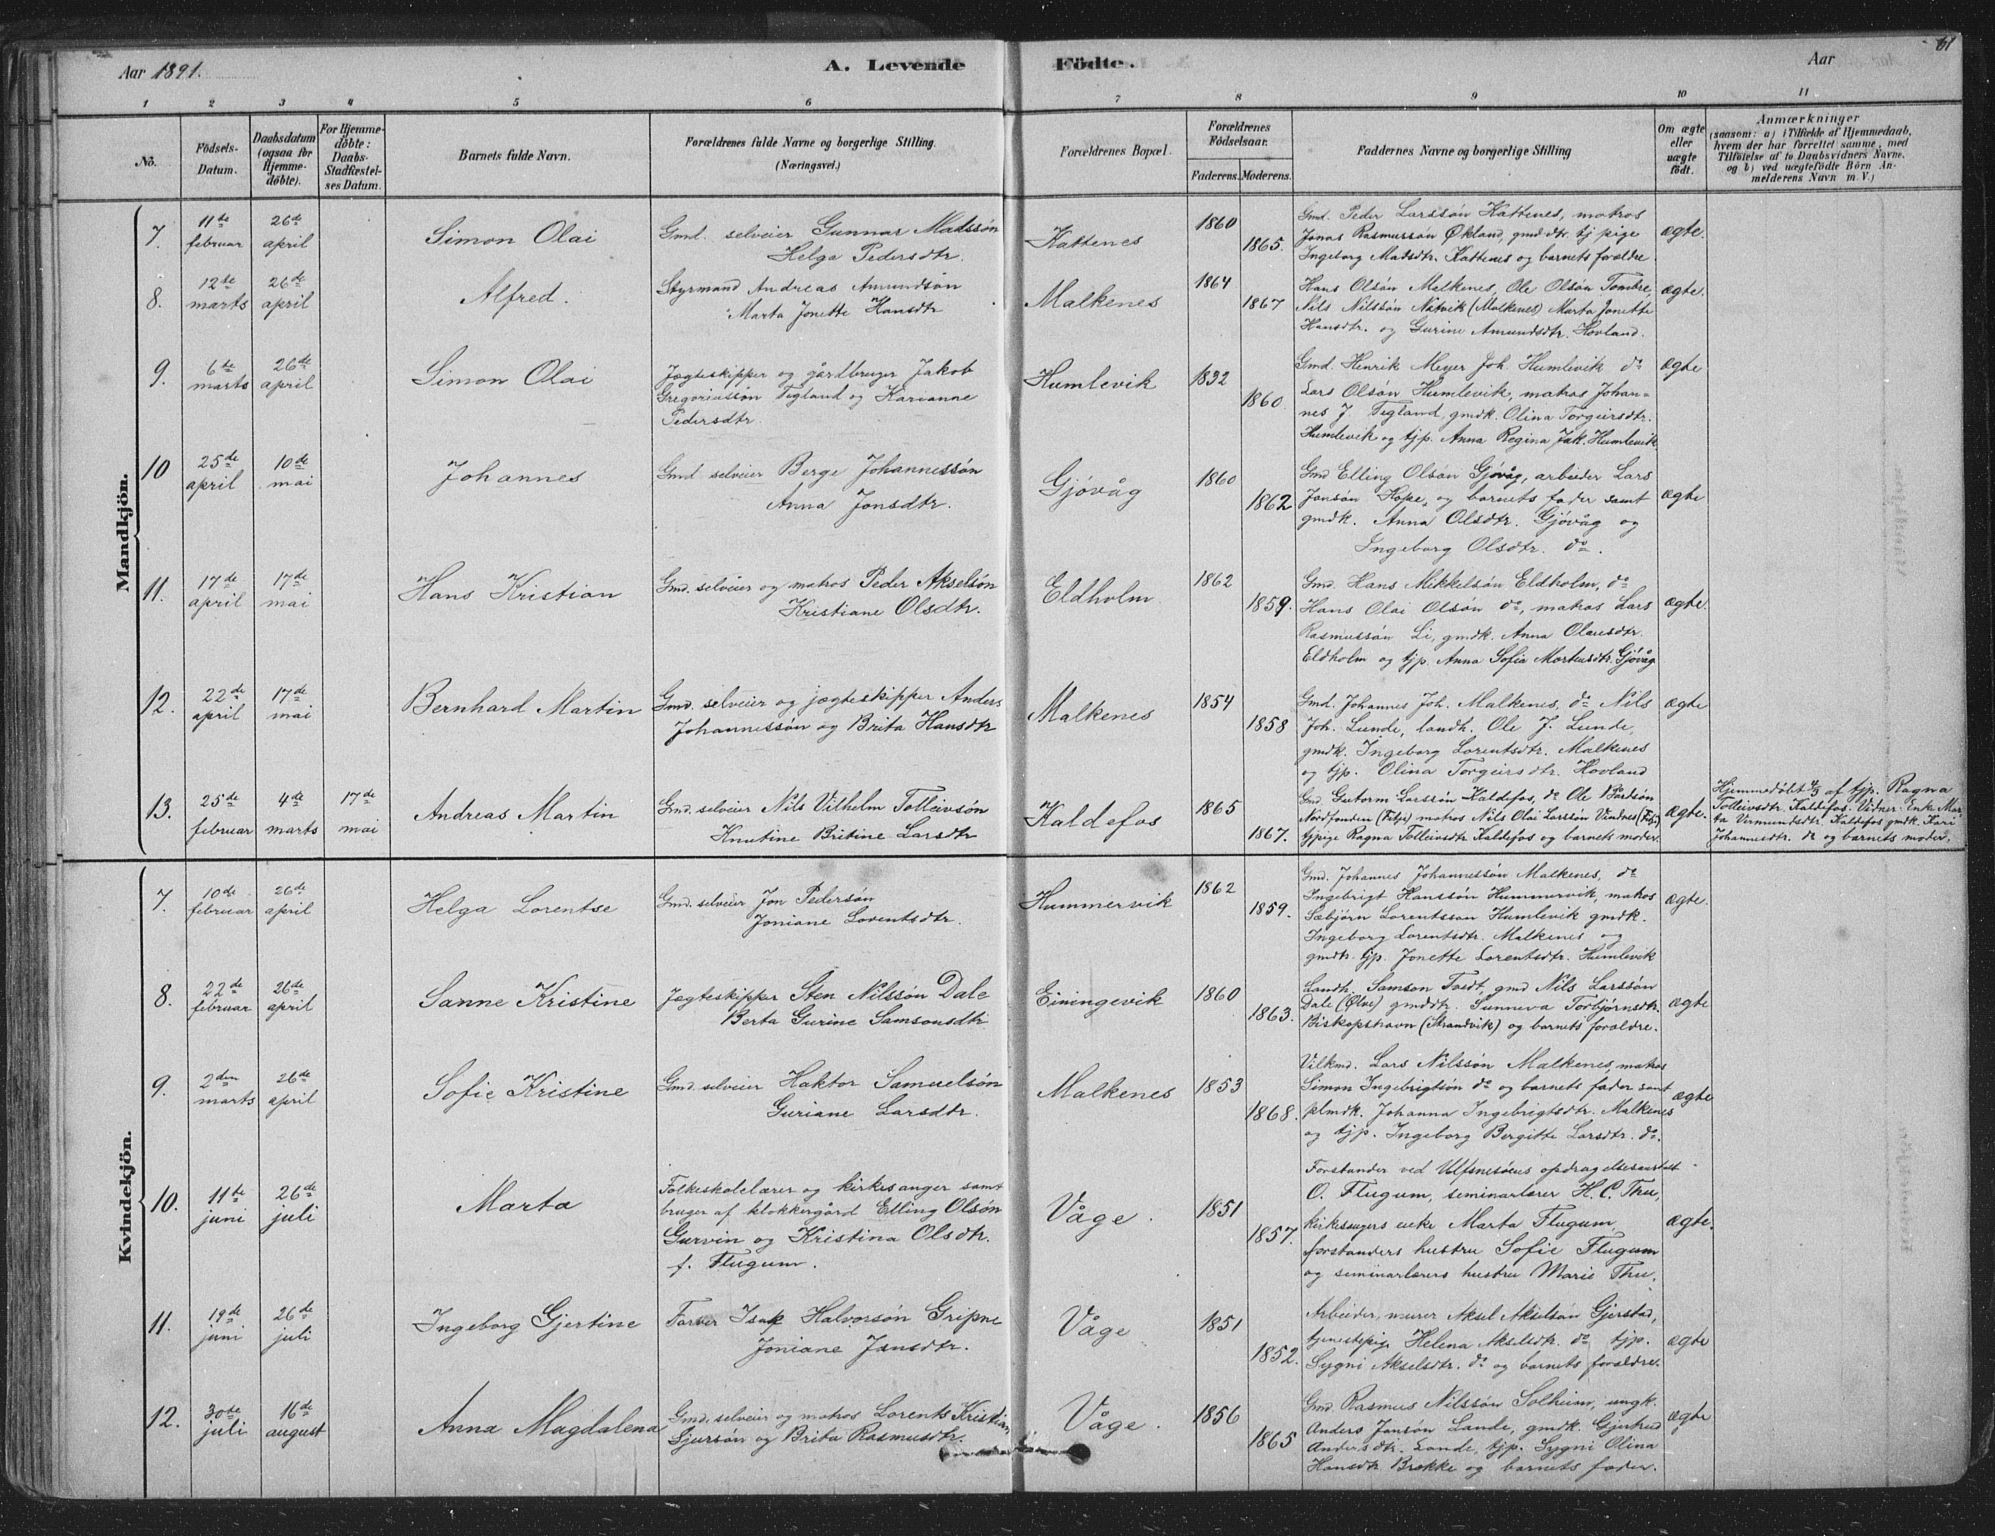 Aar 1891.
A. Levende Födte.
Aar
61
1 2 3 4 5 6 7 8 9 10 11
No.
Födsels-
Datum.
Daabsdatum
(ogsaa för
Hjemme-
döbte).
For Hjemme-
döbte:
Daabs-
Stadfæstel-
ses Datum.
Barnets fulde Navn.
Forældrenes fulde Navne og borgerlige Stilling.
(Næringsvei.)
Forældrenes Bopæl.
Forældrenes
Födselsaar.
Faderens. Moderens.
Faddernes Navne og borgerlige Stilling
Om ægte
eller
uægte
födt.
Anmærkninger
(saasom: a) i Tilfælde af Hjemmedaab,
hvem der har forrettet samme, med
Tilföielse af to Daabsvidners Navne,
og b) ved uægtefödte Börn An-
melderens Navn m. V.)
Mandkjön.
7.
11te februar
26de april
Simon Olai
Gmd. selveier Gunnar Madssøn
Helga Pedersdtr.
Kattenes
1860
1865.
Gmd. Peder Larssøn Kattenes, matros
Jonas Rasmussøn Økland, gmd.dtr. tj pige
Ingeborg Matsdtr. Kattenes og barnets forældre.
ægte.
8.
12te marts
26de april
Alfred.
Styrmand Andreas Amundsøn
Marta Jonette Hansdtr
Malkenes
1864
1867
Hans Olsøn Malkenes, Ole Olsøn Tombre,
Nils Nilssøn Natvik (Malkenes) Marta Jonette
Hansdtr. og Gurine Amundsdtr. Hovland.
ægte.
9.
6te marts
26de april
Simon Olai
Jægteskipper og gårdbruger Jakob
Gregoriussøn Tegland og Karianne
Pedersdtr.
Humlevik
1832
1860.
Gmd. Henrik Meyer Joh. Humlevik do
Lars Olsøn Humlevik, matros Johan-
nes J. Tegland, gmdk. Olina Torgeirsdtr.
Humlevik og tjp. Anna Regina Jak. Humlevik
ægte
10
25de april
10de mai
Johannes
Gmd selveier Berge Johannessøn
Anna Jonsdtr.
Gjøvåg
1860
1862
Gmd Elling Olsøn Gjøvåg, arbeider Lars
Jonsøn Hope, og barnets fader samt
gmdk. Anna Olsdtr. Gjøvåg og
Ingeborg Olsdtr. do.
ægte
11.
17de april
17de mai
Hans Kristian
Gmd. selveier og matros Peder Akselsøn
Kristiane Olsdtr.
Eldholm
1862
1859.
Gmd. Hans Mikkelsøn Eldholm, do
Hans Olai Olsøn do, matros Lars
Rasmussøn Li, gmdk. Anna Olausdtr.
Eldholm og tjp. Anna Sofia Mortensdtr. Gjøvåg
ægte.
12.
22de april
17de mai
Bernhard Martin
Gmd. selveier og jægteskipper Anders
Johannessøn og Brita Hansdtr
Malkenes
1854
1858
Gmd. Johannes Joh. Malkenes, do Nils
Joh. Lunde, landh. Ole J. Lunde,
gmdk. Ingeborg Lorentsdtr. Malkenes
og tjp. Olina Torgeirsdtr. Hovland
ægte
13.
25de februar
4de marts
17de mai
Andreas Martin
Gmd. selveier Nils Vilhelm Tolleivsøn
Knutine Britine Larsdtr
Kaldefos
1865
1867.
Gmd. Gutorm Larssøn Kaldefos, do Ole Bårdsøn
Nordfonden (Fitje) matros Nils Olai Larssøn Vindnes (Fitje)
tjpige Ragna Tolleivsdtr Kaldefos og barnets moder.
ægte.
Hjemmedøbt 4/3 af tjp. Ragna
Tolleivsdtr. Kaldefos. Vidner: Enke Mar-
ta Vermundsdtr. Kaldefos gmdk. Kari
Johannesdtr. do og barnets moder.
Kvindekjön.
7.
10de februar
26de april
Helga Lorentse
Gmd. selveier Jon Pedersøn
Joniane Lorentsdtr.
Hummervik
1862
1859.
Gmd. Johannes Johannessøn Malkenes, do
Ingebrigt Hanssøn Hummervik, matros
Sæbjørn Lorentssøn Humlevik gmdk.
Ingeborg Lorentsdtr. Malkenes og
gmdtr. tjp. Jonette Lorentsdtr. Humlevik
ægte.
8.
22de februar
26de april
Sanne Kristine
Jægteskipper Sten Nilssøn Dale
Berta Gurine Samsonsdtr
Einingevik
1860
1863.
Landh. Samson Tvedt, gmd Nils Larssøn
Dale (Ølve) gmddtr. Sunneva Torbjørnsdtr.
Biskopshavn (Strandvik) og barnets forældre.
ægte
9.
2den marts
26de april
Sofie Kristine
Gmd. selveier Haktor Samuelsøn
Guriane Larsdtr.
Malkenes
1853
1868.
Vilkmd. Lars Nilssøn Malkenes, matros
Simon Ingebrigtsøn do og barnets fader samt
plmdk. Johanna Ingebrigtsdtr. Malkenes
og tjp. Ingeborg Bergitte Larsdtr. do.
ægte
10.
11te juni
26de juli
Marta
Folkeskolelærer og kirkesanger samt
bruger af klokkergård Elling Olsøn
Gurvin og Kristina Olsdtr.
f. Flugum.
Våge.
1851
1857.
Forstander ved Ulfsnesøens opdragelsesanstalt
O. Flugum, seminarlærer H. C. Thu,
kirkesangers enke Marta Flugum,
forstanders hustru Sofie Flugum
og seminarlærers hustru Marie Thu.
ægte.
11.
19de juni
26de juli
Ingeborg Gjertine
Farver Isak Halvorsøn Gripne
Joniane Jansdtr.
Våge
1851
1852.
Arbeider, murer Aksel Akselsøn Gjerstad,
tjenestepige Helena Akselsdtr. do tjp.
Sygni Akselsdtr. do og barnets forældre.
ægte
12.
30te juli
16de august
Anna Magdalena
Gmd. selveier og matros Lorents Kristian
Gjursøn og Brita Rasmusdtr.
Våge.
1856
1865
Gmd. Rasmus Nilssøn Solheim, ungk.
Anders Jansøn Lande, gmdk. Gjertrud
Andersdtr. Lande, tjp. Sygni Olina
Hansdtr Brekke og barnets fader.
ægte